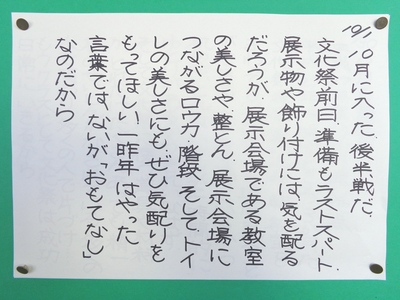 10/1 10月に入った。後半戦だ。
文化祭前日。準備もラストスパート。
展示物や飾り付けには、気を配る
だろうが、展示会場である教室
の美しさや、整とん、展示会場に
つながるロウカ、階段、そして、トイ
レの美しさにも、ぜひ気配りを
もってほしい。一昨年はやった
言葉では、ないが「おもてなし」
なのだから